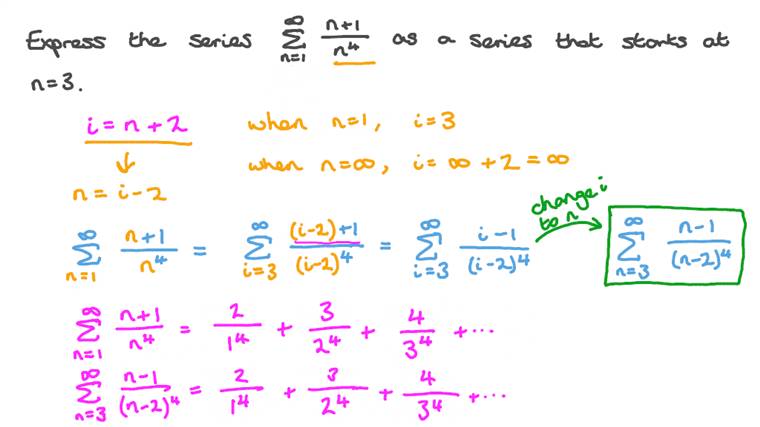 Express the series $\sum_{n=1}^{\infty} \frac{n+1}{n^4}$ as a series that starts at
n=3.
i = n + 2 when n=1, i=3
↓ when n=∞, i = ∞ + 2 = ∞
n = i-2
change i
to n
$\sum_{n=1}^{\infty} \frac{n+1}{n^4} = \sum_{i=3}^{\infty} \frac{(i-2)+1}{(i-2)^4} = \sum_{i=3}^{\infty} \frac{i-1}{(i-2)^4}$ → $\sum_{n=3}^{\infty} \frac{n-1}{(n-2)^4}$
$\sum_{n=1}^{\infty} \frac{n+1}{n^4} = \frac{2}{1^4} + \frac{3}{2^4} + \frac{4}{3^4} + \cdots$
$\sum_{n=3}^{\infty} \frac{n-1}{(n-2)^4} = \frac{2}{1^4} + \frac{3}{2^4} + \frac{4}{3^4} + \cdots$